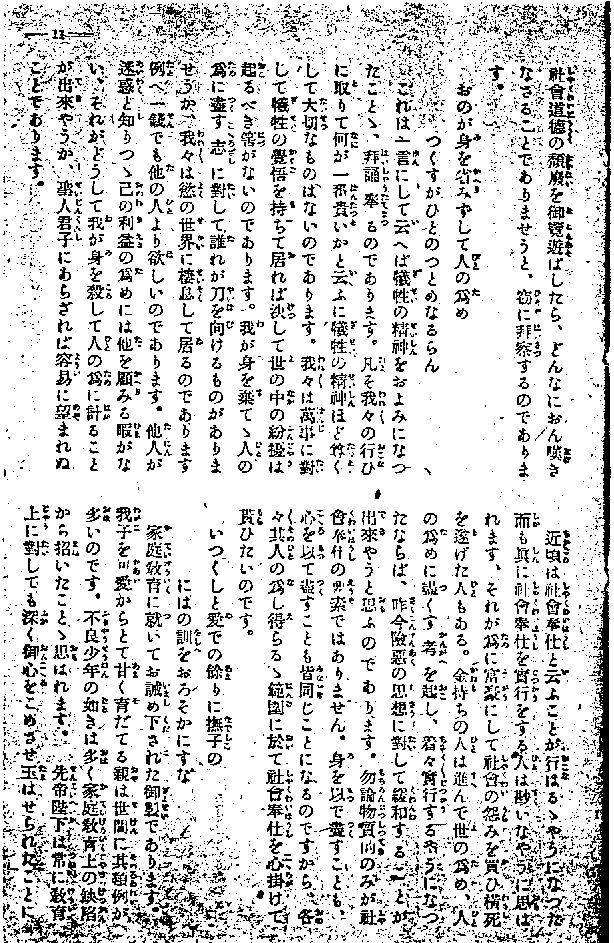 — 11 —
社會道德の頽廢を御覽遊ばしたら、どんなにおん嘆き
なさることでありませうと、竊に拜察するのでありま
す。
おのが身を省みずして人の爲め
つくすがひとのつとめなるらん
これは一言にして云へば犠牲の精神をおよみになつ
たことゝ、拜誦奉るのであります。凡そ我々の行ひ
に取りて何が一番貴いかと云ふに犠牲の精神ほど尊く
して大切なものはないのであります。我々は萬事に對
して犠牲の覺悟を持ちて居れば決して世の中の紛擾は
起るべき筈がないのであります。我が身を棄てゝ人の
爲に盡す志に對して誰れが刀を向けるものがありま
せうか、我々は慾の世界に棲息して居るのであります
例へ一錢でも他の人より欲しいのであります。他人が
迷惑と知りつゝ己の利益の爲めには他を顧みる暇がな
い、それがどうして我が身を殺して人の爲に計ること
が出來やうか、聖人君子にあらざれば容易に望まれぬ
ことであります。
近頃は社會奉仕と云ふことが行はるゝやうになつた
而も眞に社會奉仕を實行をする人は尠いやうに思は
れます、それが爲に富豪にして社會の怨みを買ひ橫死
を遂げた人もある。金持ちの人は進んで世の爲め、人
の爲めに盡くす考を起し、着々實行するやうになつ
たならば、昨今險惡の思想に對して緩和することが
出來やうと思ふのであります。勿論物質的のみが社
會奉仕の要素ではありません。身を以て盡すことも、
心を以て盡すことも皆同じことになるのですから、各
々其人の爲し得らるゝ範圍に於て社會奉仕を心掛けて
貰ひたいのです。
いつくしと愛での餘りに撫子の
にはの訓をおろそかにすな
家庭敎育に就いてお誡め下された御製であります。
我子を可愛からとて甘く育だてる親は世間に其類例が
多いのです。不良少年の如きは多く家庭敎育上の缺陷
から招いたことゝ思はれます。先帝陛下は常に敎育
上に對しても深く御心をこめさせ玉はせられたことに